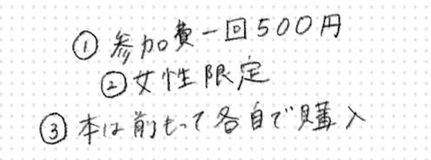 ① 参加費一回500円
② 女性限定
③ 本は前もって各自で購入